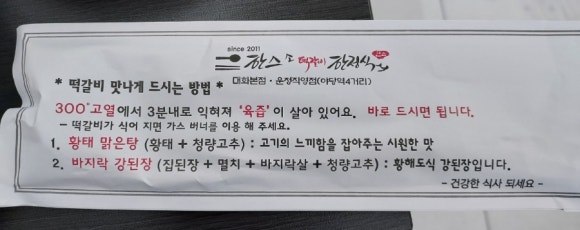 since 2011
한스 떡갈비 한정식
대화본점 · 운정직영점(야당역4거리)
* 떡갈비 맛나게 드시는 방법 *
300°고열에서 3분내로 익혀져 '육즙'이 살아 있어요. 바로 드시면 됩니다.
- 떡갈비가 식어 지면 가스 버너를 이용 해 주세요.
1. 황태 맑은탕 (황태 + 청량고추) : 고기의 느끼함을 잡아주는 시원한 맛
2. 바지락 강된장 (집된장 + 멸치 + 바지락살 + 청량고추) : 황해도식 강된장입니다.
- 건강한 식사 되세요 -